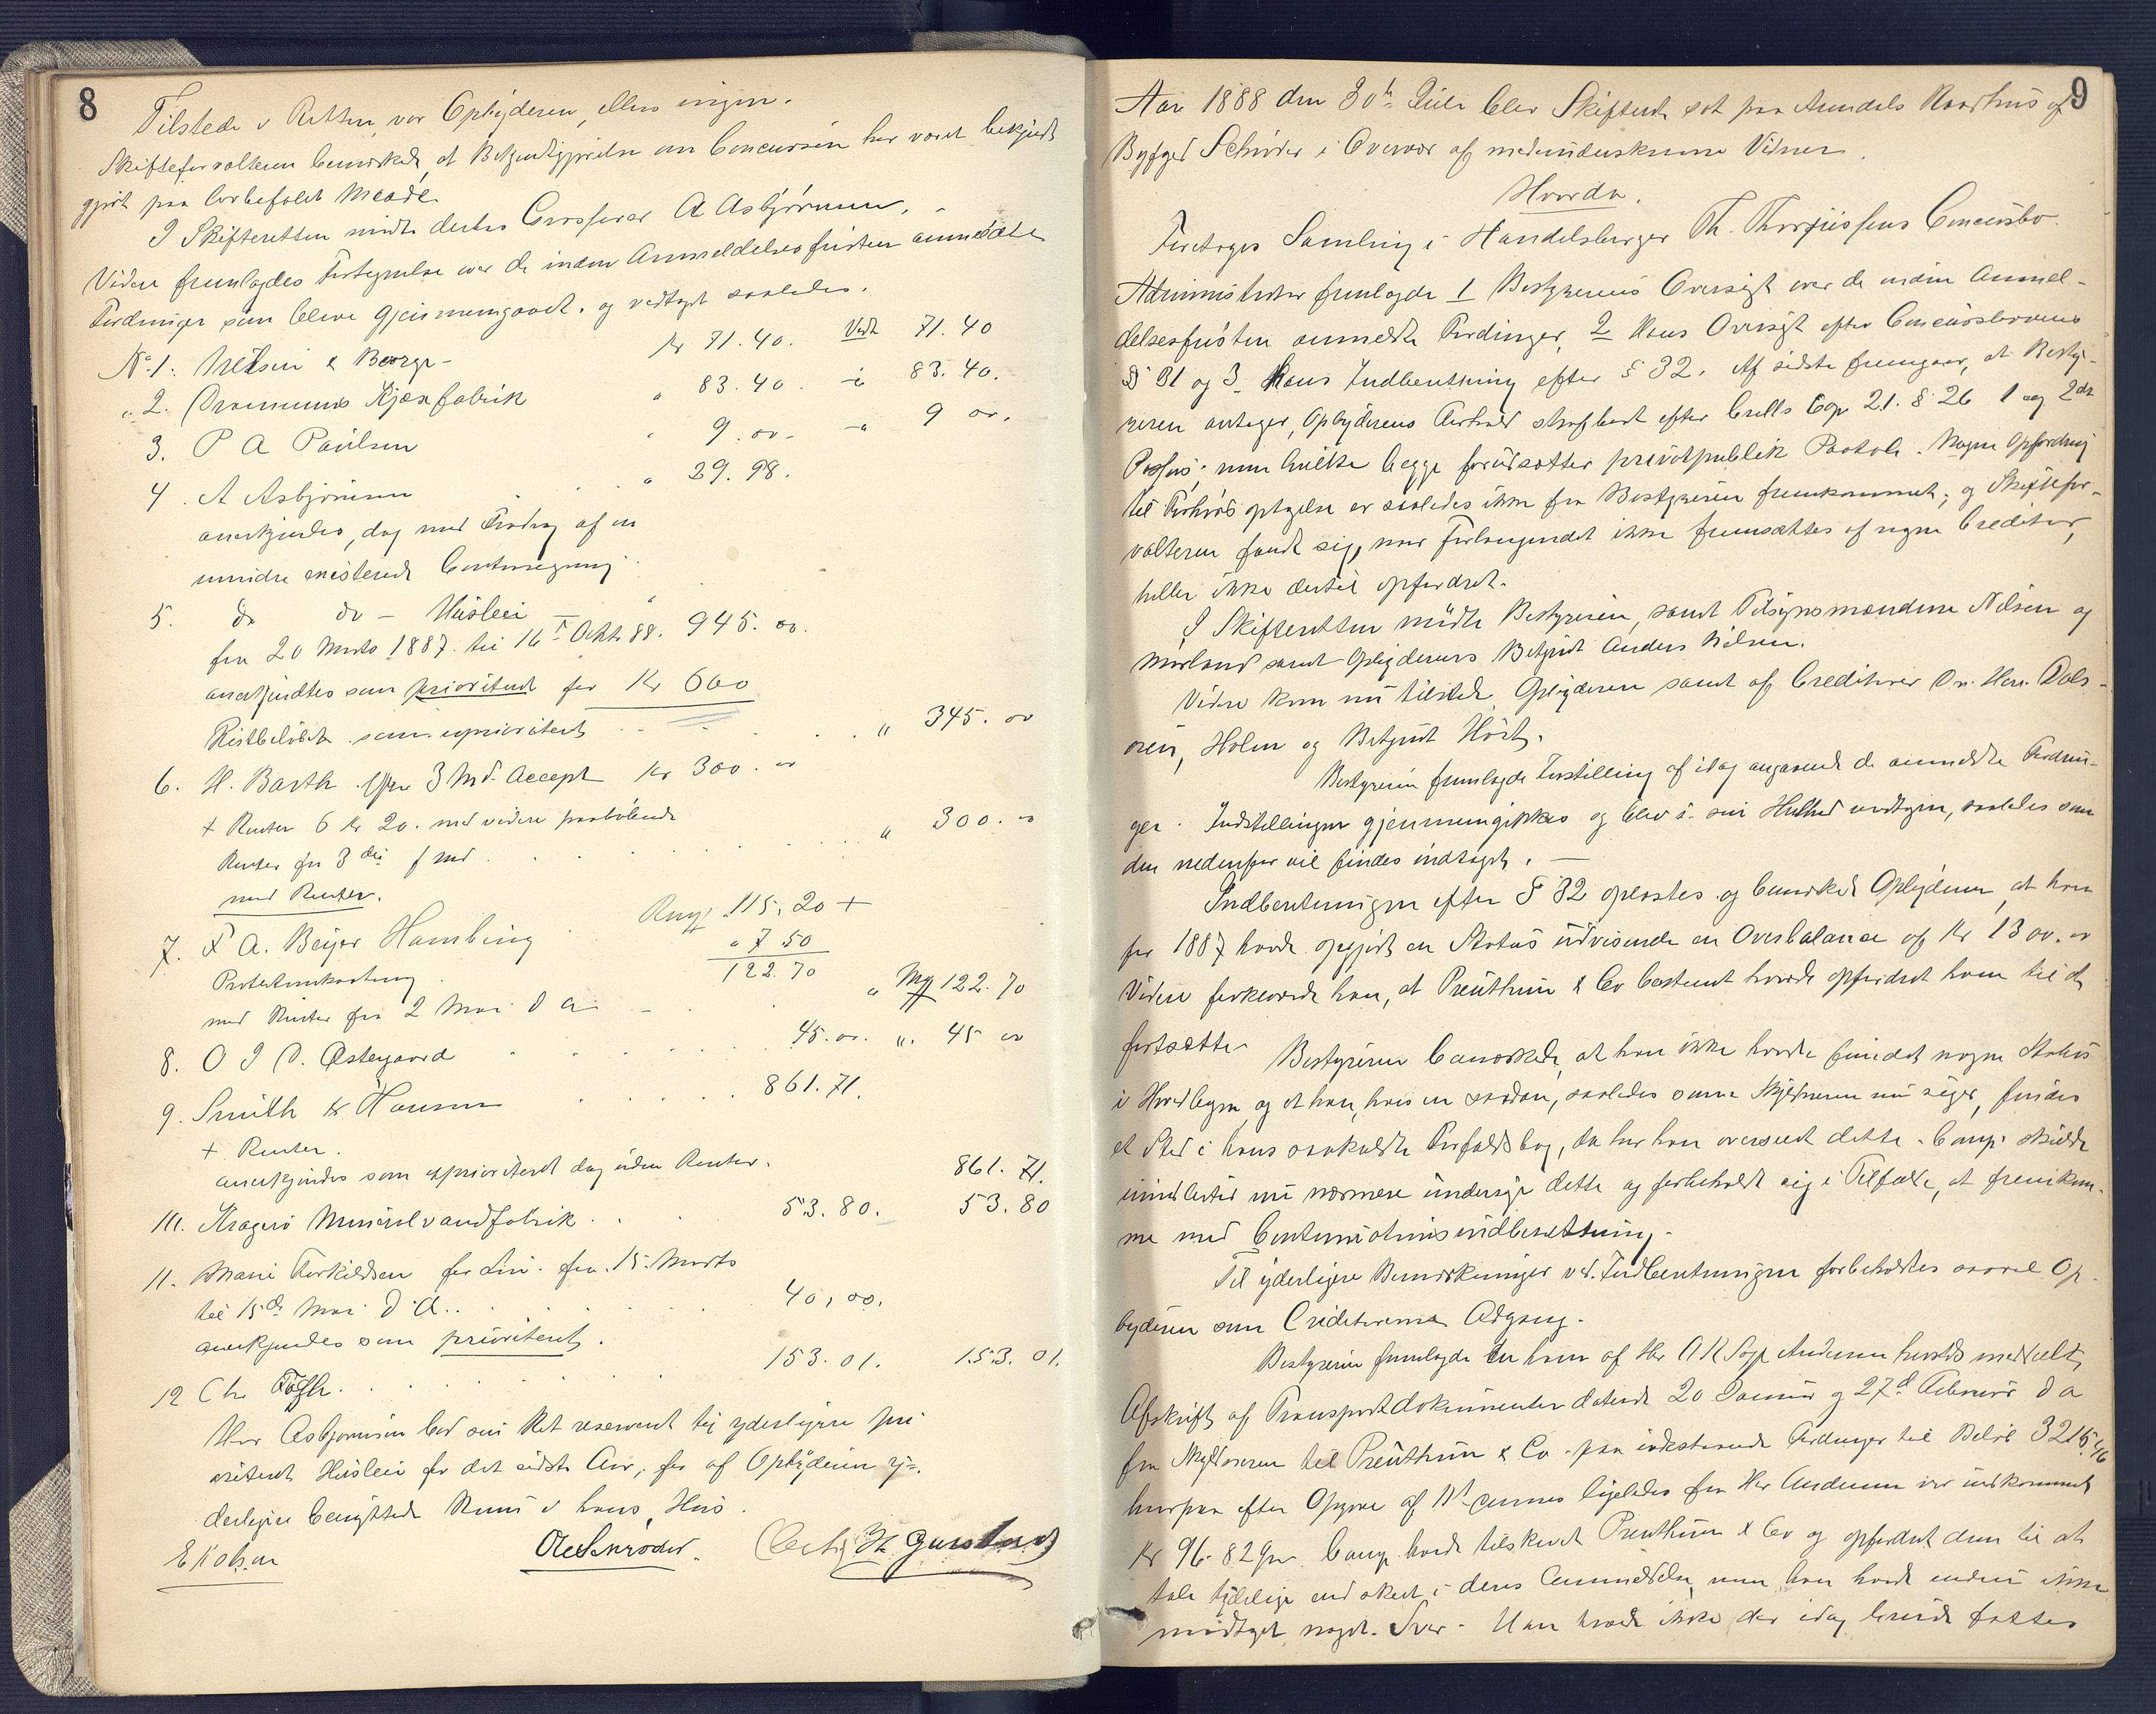 8
Tilstede i Retten var Opbyderen, ellers ingen.
Skifteforvalteren bemærkede, at Bekjendtgjørelse om Concursen har været bekjendt
gjort paa lovbefalet Maade
I Skifteretten mødte derhos Grosserer A Asbjørnsen.
Videre fremlagdes Fortegnelse over de inden Anmeldelsesfristen anmeldte
Fordringer som bleve gjennemgaaet og vedtaget saaledes.
No 1. Nielsen & Kr 71.40. Vedt 71.40
" 2. Drammens fabrik " 83.40. " 83.40.
3. P A Paulsen " 9.00. " 9 00.
4. A Asbjørnsen " 29.98.
anerkjendes, dog med Fradrag af en
mindre Contraregning
5. do do – Husleie "
fra 20 Marts 1887 til 16 Octbr 88. 945.00.
anerkjendtes som prioriteret for Kr 600
Restbeløbet som uprioriteret " 345.00
6. H. Barth 3 Md. Accept Kr 300.00
+ Renter 6 Kr 20. med videre paaløbende
Renter fra 3die f Md. " 300.00
med Renter.
7. F A. Beyer Hamburg 115.20 +
Protestomkostning " 7 50
122.70
med Renter fra 2 Mai d A " 122.70
8. O J D. Østergaard 45.00. " 45 00
9. Smith & Hansen 861.71.
+ Renter.
anerkjendes som uprioriteret dog uden Renter. 861.71.
10. Kragerø Mineralvandfabrik 53.80. 53.80
11. Marie Torkildsen for Løn fra 15. Marts
til 15de Mai d. A. 40,00.
anerkjendes som prioriteret.
12 Chr 153.01. 153.01.
Herr Asbjørnsen bad sin Ret reserveret til yderligere pri
oriteret Husleie for det sidste Aar, for af Opbyderen y-
derligere benyttede Rum i hans Hus.
9
Aar 1888 den 30te Juli blev Skifteret sat paa Arendals Raadhus af
Byfoged Schrøder i Overvær af medunderskrevne Vidner.
Hvorda.
Foretoges Samling i Handelsborger Th. Concursbo.
Administrator fremlagde 1 Bestyrerens Oversigt over de inden Anmel-
delsesfristen anmeldte Fordringer, 2 Hans Oversigt efter Concurslovens
§ 31 og 3 Hans Indberetning efter § 32. Af sidste fremgaar, at Besty-
reren antager, Opbyderens Forhold strafbart efter Crlls Cap 21. § 26 1 og 2det
Passus; men hvilke begge forudsætter privatpublik Paatale. Nogen Opfordring
til Forhørs optagelse er saaledes ikke fra Bestyreren fremkommet; og Skiftefor-
valteren fandt sig, naar Forlangendet ikke fremsættes af nogen Creditor,
heller ikke dertil opfordret.
I Skifteretten mødte Bestyreren, samt Tilsynsmændene Nilsen og
Mørland samt Opbyderens Betjent Anders Nilsen.
Videre kom nu tilstede Opbyderen samt af Creditorer Dr. Herr. Dals-
, Holm og Betjent Hørt.
Bestyreren fremlagde Indstilling af idag angaaende de anmeldte Fordrin-
ger. Indstillingen gjennemgikkes og blev i sin Helhed vedtagen, saaledes som
den nedenfor vil findes indtaget. —
Indberetningen efter § 32 oplæstes og bemærked Opbyderen, at han
for 1887 havde opgjort en Status udvisende en Overbalance af Kr 1300.00
Videre forklarede han, at Preuthun & Co bestemt havde opfordret ham til at
fortsætte.
Bestyreren bemærkede, at han ikke havde fundet nogen Status
i Hovedbogen, og at han, hvis en saadan, saaledes som Skyldneren nu siger, findes
et Sted i hans saakaldte Forfaldsbog, da har han overseet dette. Comp. skulde
imidlertid nu nærmere undersøge dette og forbeholdt sig i Tilfælde, at fremkom-
me med Continuationsindberetning.
Til yderligere Bemærkninger ved Indberetningen forbeholdtes saavel Op-
byderen som Creditorerne Adgang.
Bestyreren fremlagde en ham af Hr Andersen meddelt
Afskrift af Transportdokumenter daterede 20 Januar og 27d Februar d A
fra Skyldneren til Preuthun & Co paa udestaaende Fordringer til Beløb 3215.46
hvorpaa efter Opgave af ligeledes fra Hr Andersen var indkommet
Kr 96.82 Øre. Comp. havde tilskrevet Preuthun & Co og opfordret dem til at
tale tydelige end skeet i deres Anmeldelse, men han havde endnu ikke
modtaget noget Svar. Han havde ikke der idag burde fattes